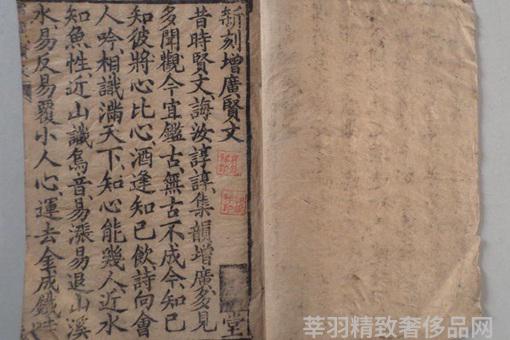 新刻增廣賢文
堂
昔時賢文誨汝諄諄集韻增廣多見
多聞觀今宜鑑古無古不成今知已
知彼將心比心酒逢知已飲詩向會
人吟相識滿天下知心能幾人近水
知魚性近山識鳥音易漲易退山溪
水易反易覆小人心運去金成鐵時
莘羽精致奢侈品网